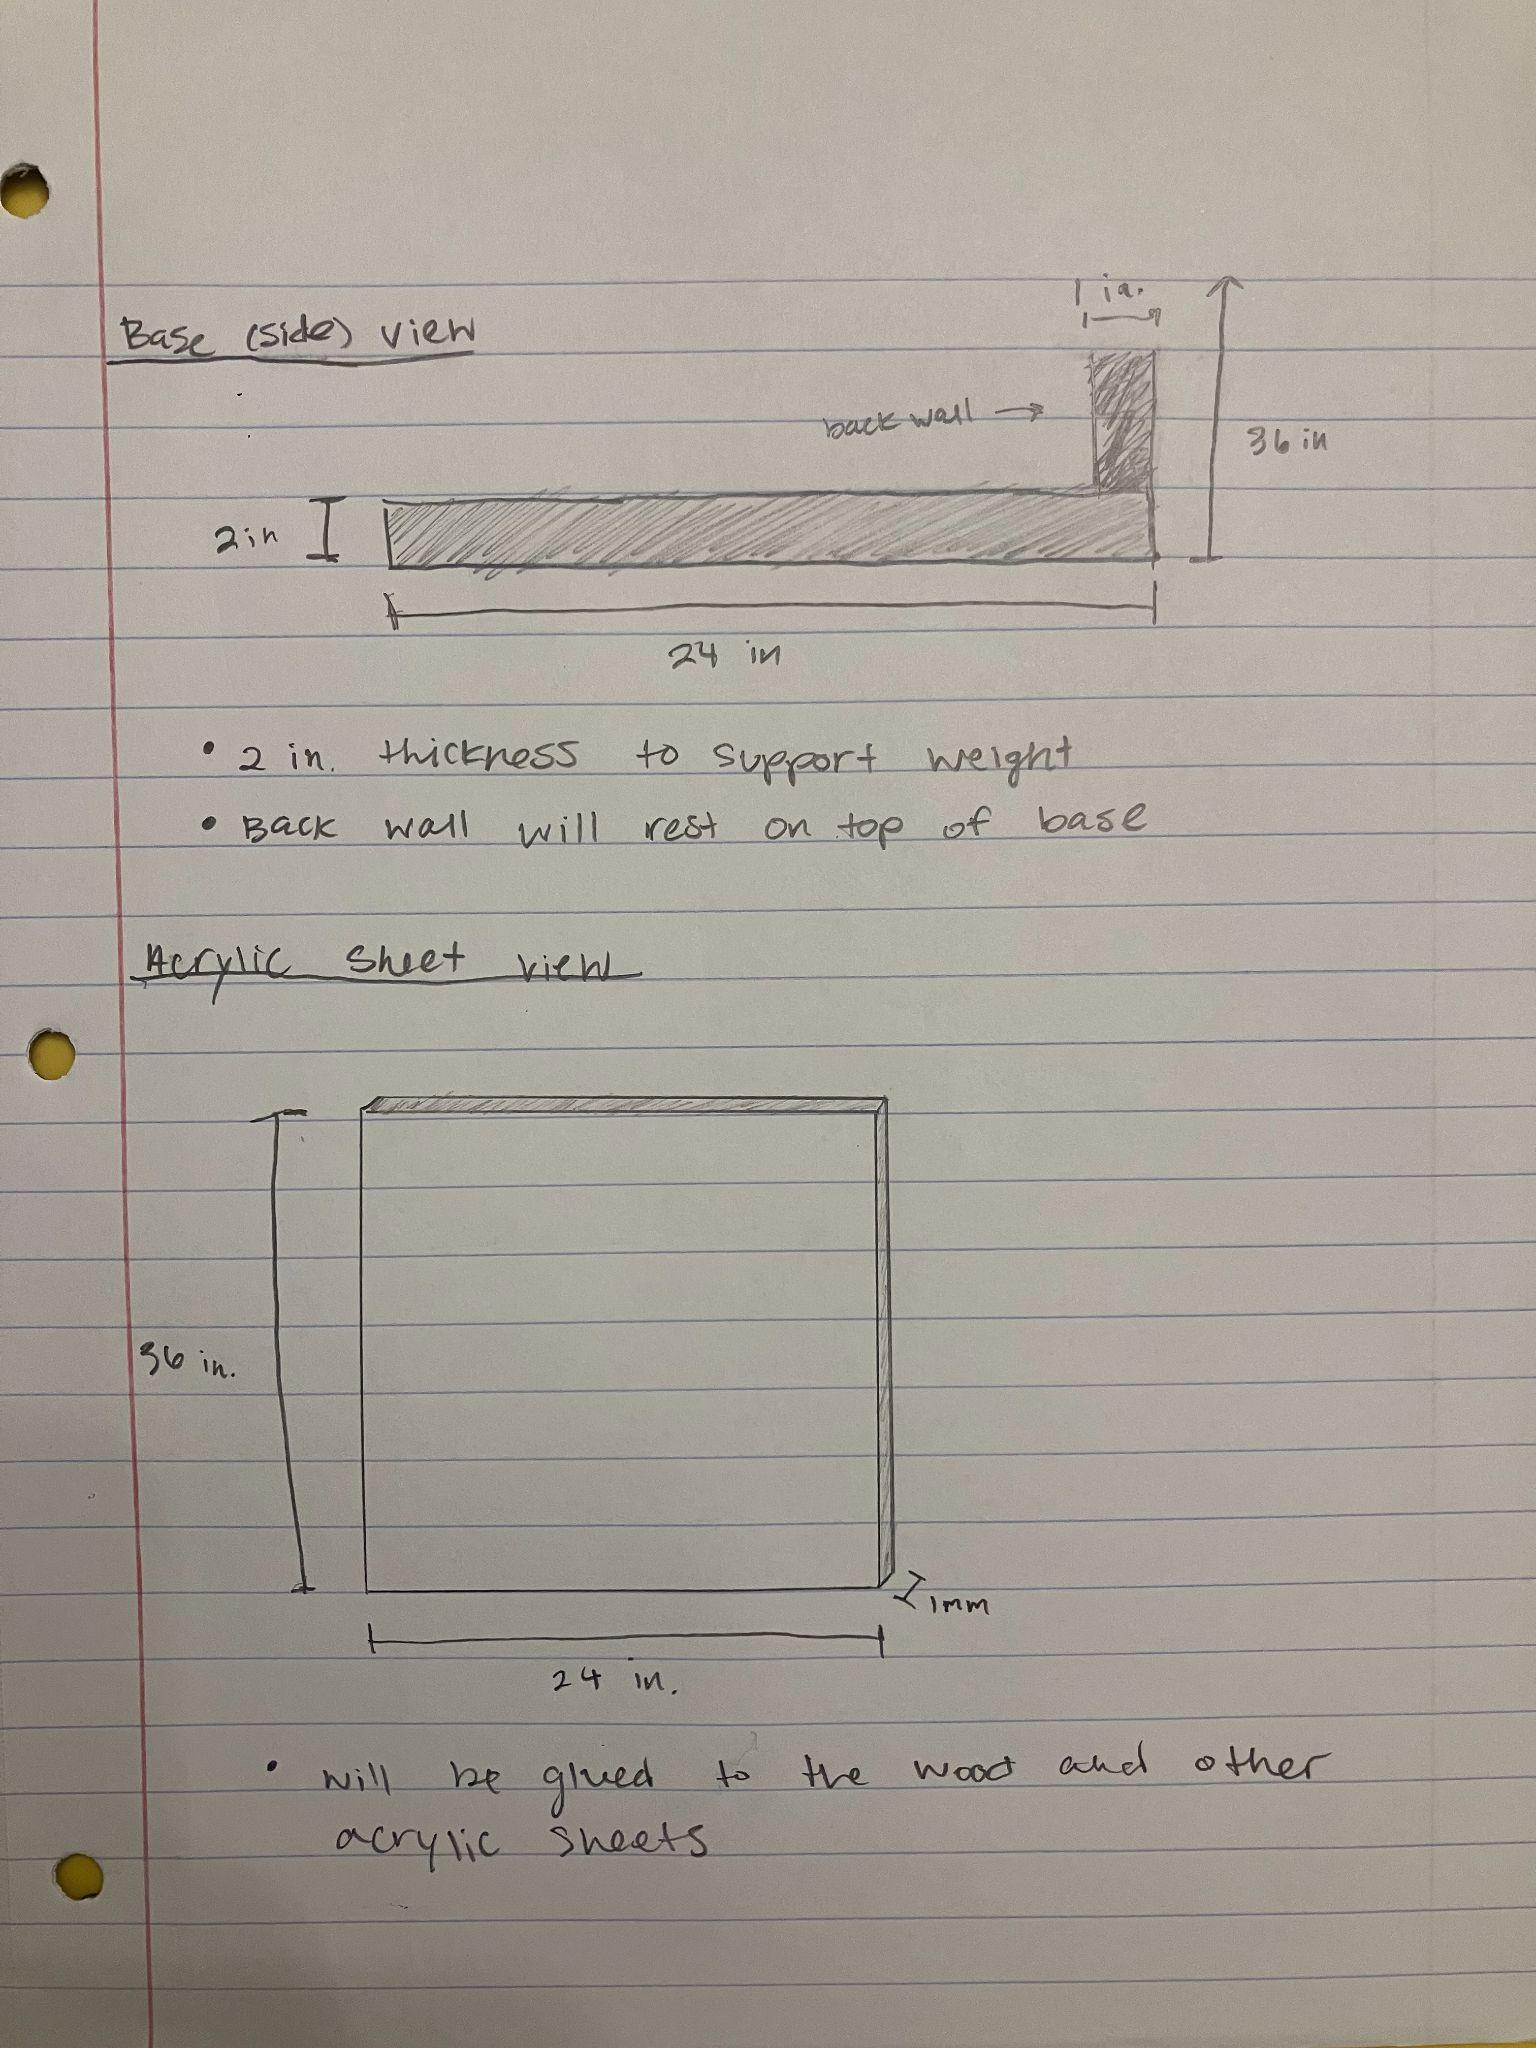 1 in.
Base (side) view
back wall →
36 in
2in
24 in
• 2 in. thickness to support weight
• Back wall will rest on top of base
Acrylic sheet view
36 in.
1mm
24 in.
• will be glued to the wood and other
acrylic sheets